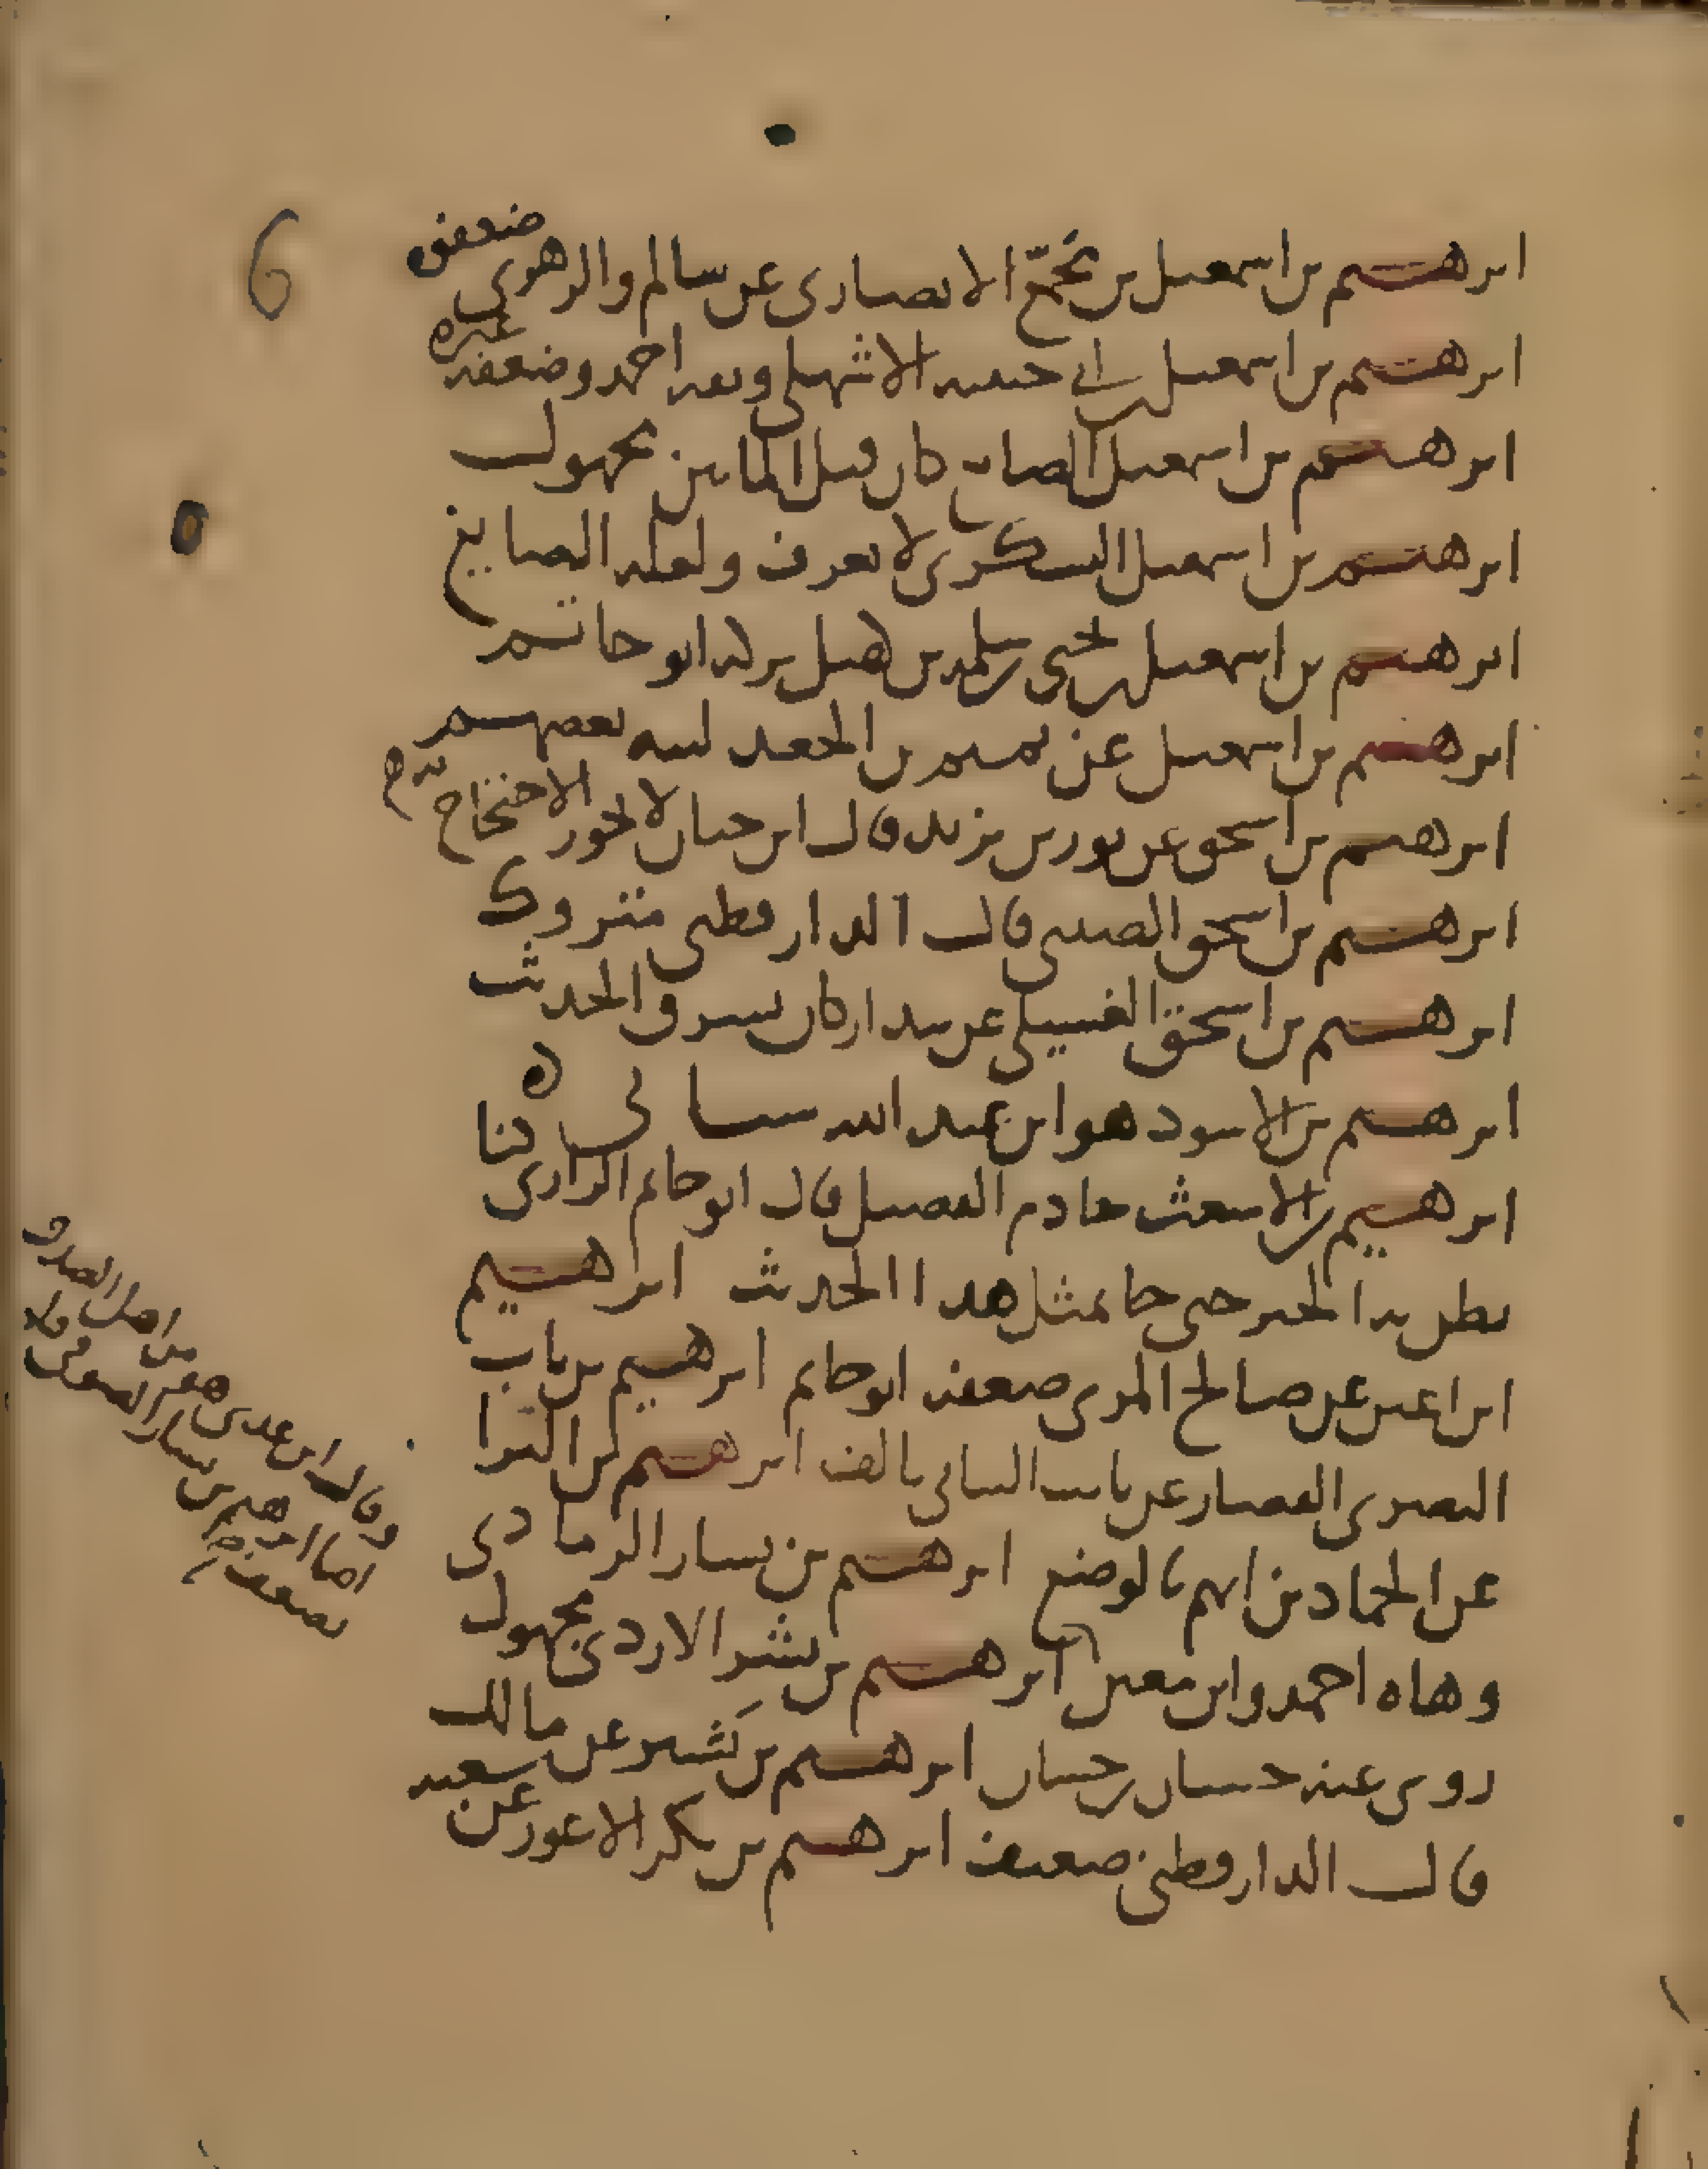 ابرهيم بن اسمعيل بن مجمع الانصاري عن سالم والزهري ضعفوه
ابرهيم بن اسمعيل بن ابي حبيبه الاشهلي وثقه احمد وضعفه غيره
ابرهيم بن اسمعيل الصايغ كان قبل المايتين مجهول
ابرهيم بن اسمعيل السكري لا يعرف ولعله الصايغ
ابرهيم بن اسمعيل بن يحيى بن سلمه بن كهيل تركه ابو حاتم
ابرهيم بن اسمعيل عن تميم بن الجعد لينه بعضهم
ابرهيم بن اسحق عن ثور بن يزيد قال ابن حبان لا يجوز الاحتجاج به
ابرهيم بن اسحق الصيني قال الدارقطني متروك
ابرهيم بن اسحق الغسيلي عن بندار كان يسرق الحديث
ابرهيم بن الاسود هو ابن عبد الله سياتي
ابرهيم بن الاشعث خادم الفضيل قال ابو حاتم الرازي كنا
نظن به الخير حتى جا بمثل هذا الحديث ابرهيم
ابن اعين عن صالح المري ضعفه ابو حاتم ابرهيم بن باب
البصري القصار عن ثابت البناني تالف ابرهيم بن البرا
عن الحمادين اتهم بالوضع ابرهيم بن بشار الرمادي
وهاه احمد وابن معين ابرهيم بن بشر الازدي مجهول
روى عنه حسان بن حسان ابرهيم بن بشير عن مالك
قال الدارقطني ضعيف ابرهيم بن بكر الاعور عن شعبه
وقال ابن عدي هو من اهل الصدق
ابرهيم بن بشار الصوفي
بضعف
6